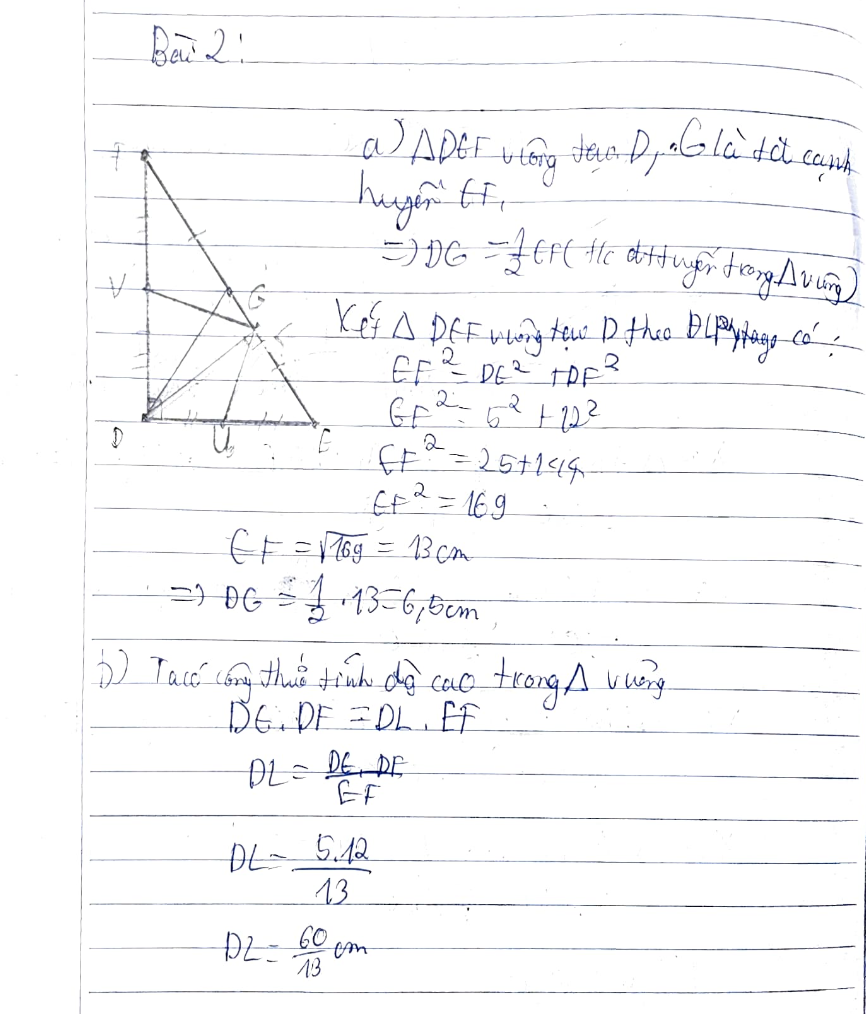 Bài 2:
a) ΔDEF vuông tại D, G là tđ cạnh
huyền EF,
=> DG = 1/2 EF (t/c đtt tuyến trong Δ vuông)
Xét Δ DEF vuông tại D theo ĐL Pytago có:
EF² = DE² + DF²
EF² = 5² + 12²
EF² = 25+144
EF² = 169
EF = √169 = 13cm
=> DG = 1/2 . 13 = 6,5cm
b) Ta có công thức tính độ cao trong Δ vuông
DE. DF = DL. EF
DL = DE. DF / EF
DL = 5.12 / 13
DL = 60/13 cm
F
V
G
D
U
E